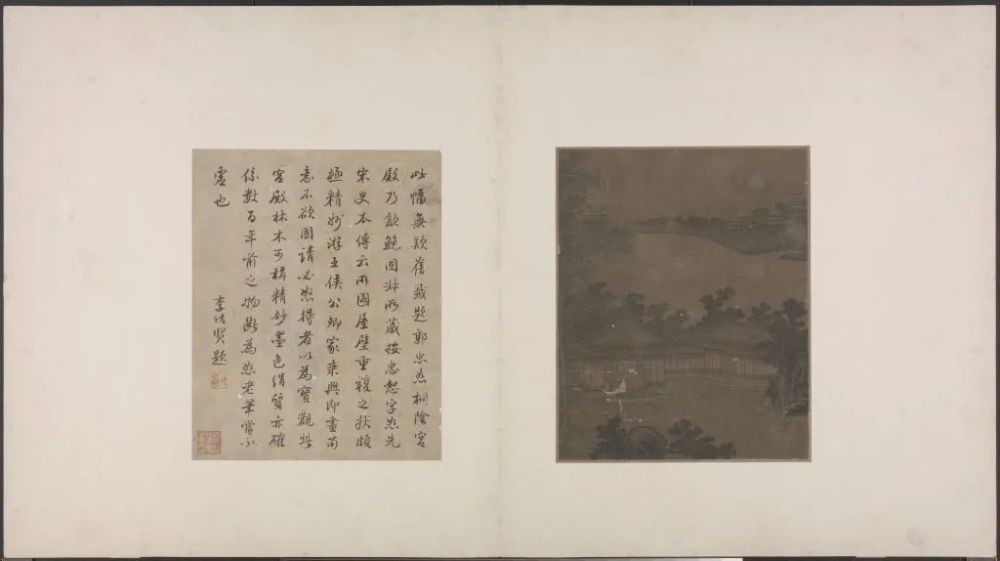 此幅無款舊籤題郭忠恕桐陰宮
殿乃歙鮑氏所藏按忠恕字恕先
宋史本傳云所圖屋壁重複之狀頗
極精妙游王侯公卿家乘興即畫苟
意不欲固請必怒得者以為寶觀此
宮殿林木可稱精妙墨色絹質亦確
係數百年前之物斷為恕老筆當不
虛也
李佐賢題